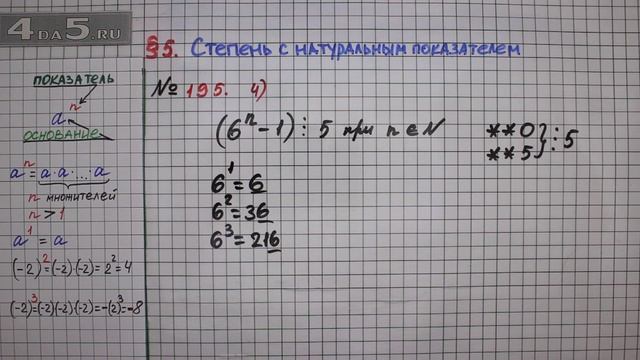 4DA5.RU
§5. Степень с натуральным показателем
показатель
aⁿ
основание
aⁿ = a·a·...·a
n множителей
n > 1
a¹ = a
(-2)²=(-2)·(-2)=2²=4
(-2)³=(-2)(-2)(-2)=-(2)³=-8
№ 195. 4)
(6ⁿ-1)⋮5 при n∈N
**0}
**5} ⋮5
6¹=6
6²=36
6³=216